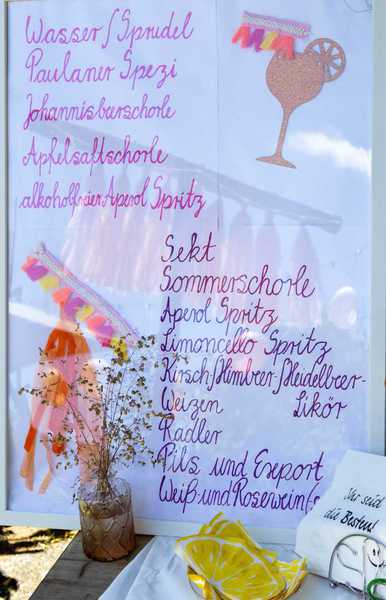 Wasser/Sprudel
Paulaner Spezi
Johannisbeerschorle
Apfelsaftschorle
alkoholfreier Aperol Spritz
Sekt
Sommerschorle
Aperol Spritz
Limoncello Spritz
Kirsch-/Himbeer-/Heidelbeer-
Weizen Likör
Radler
Pils und Export
Weiß- und Rosewein
Ihr seid
die Besten!